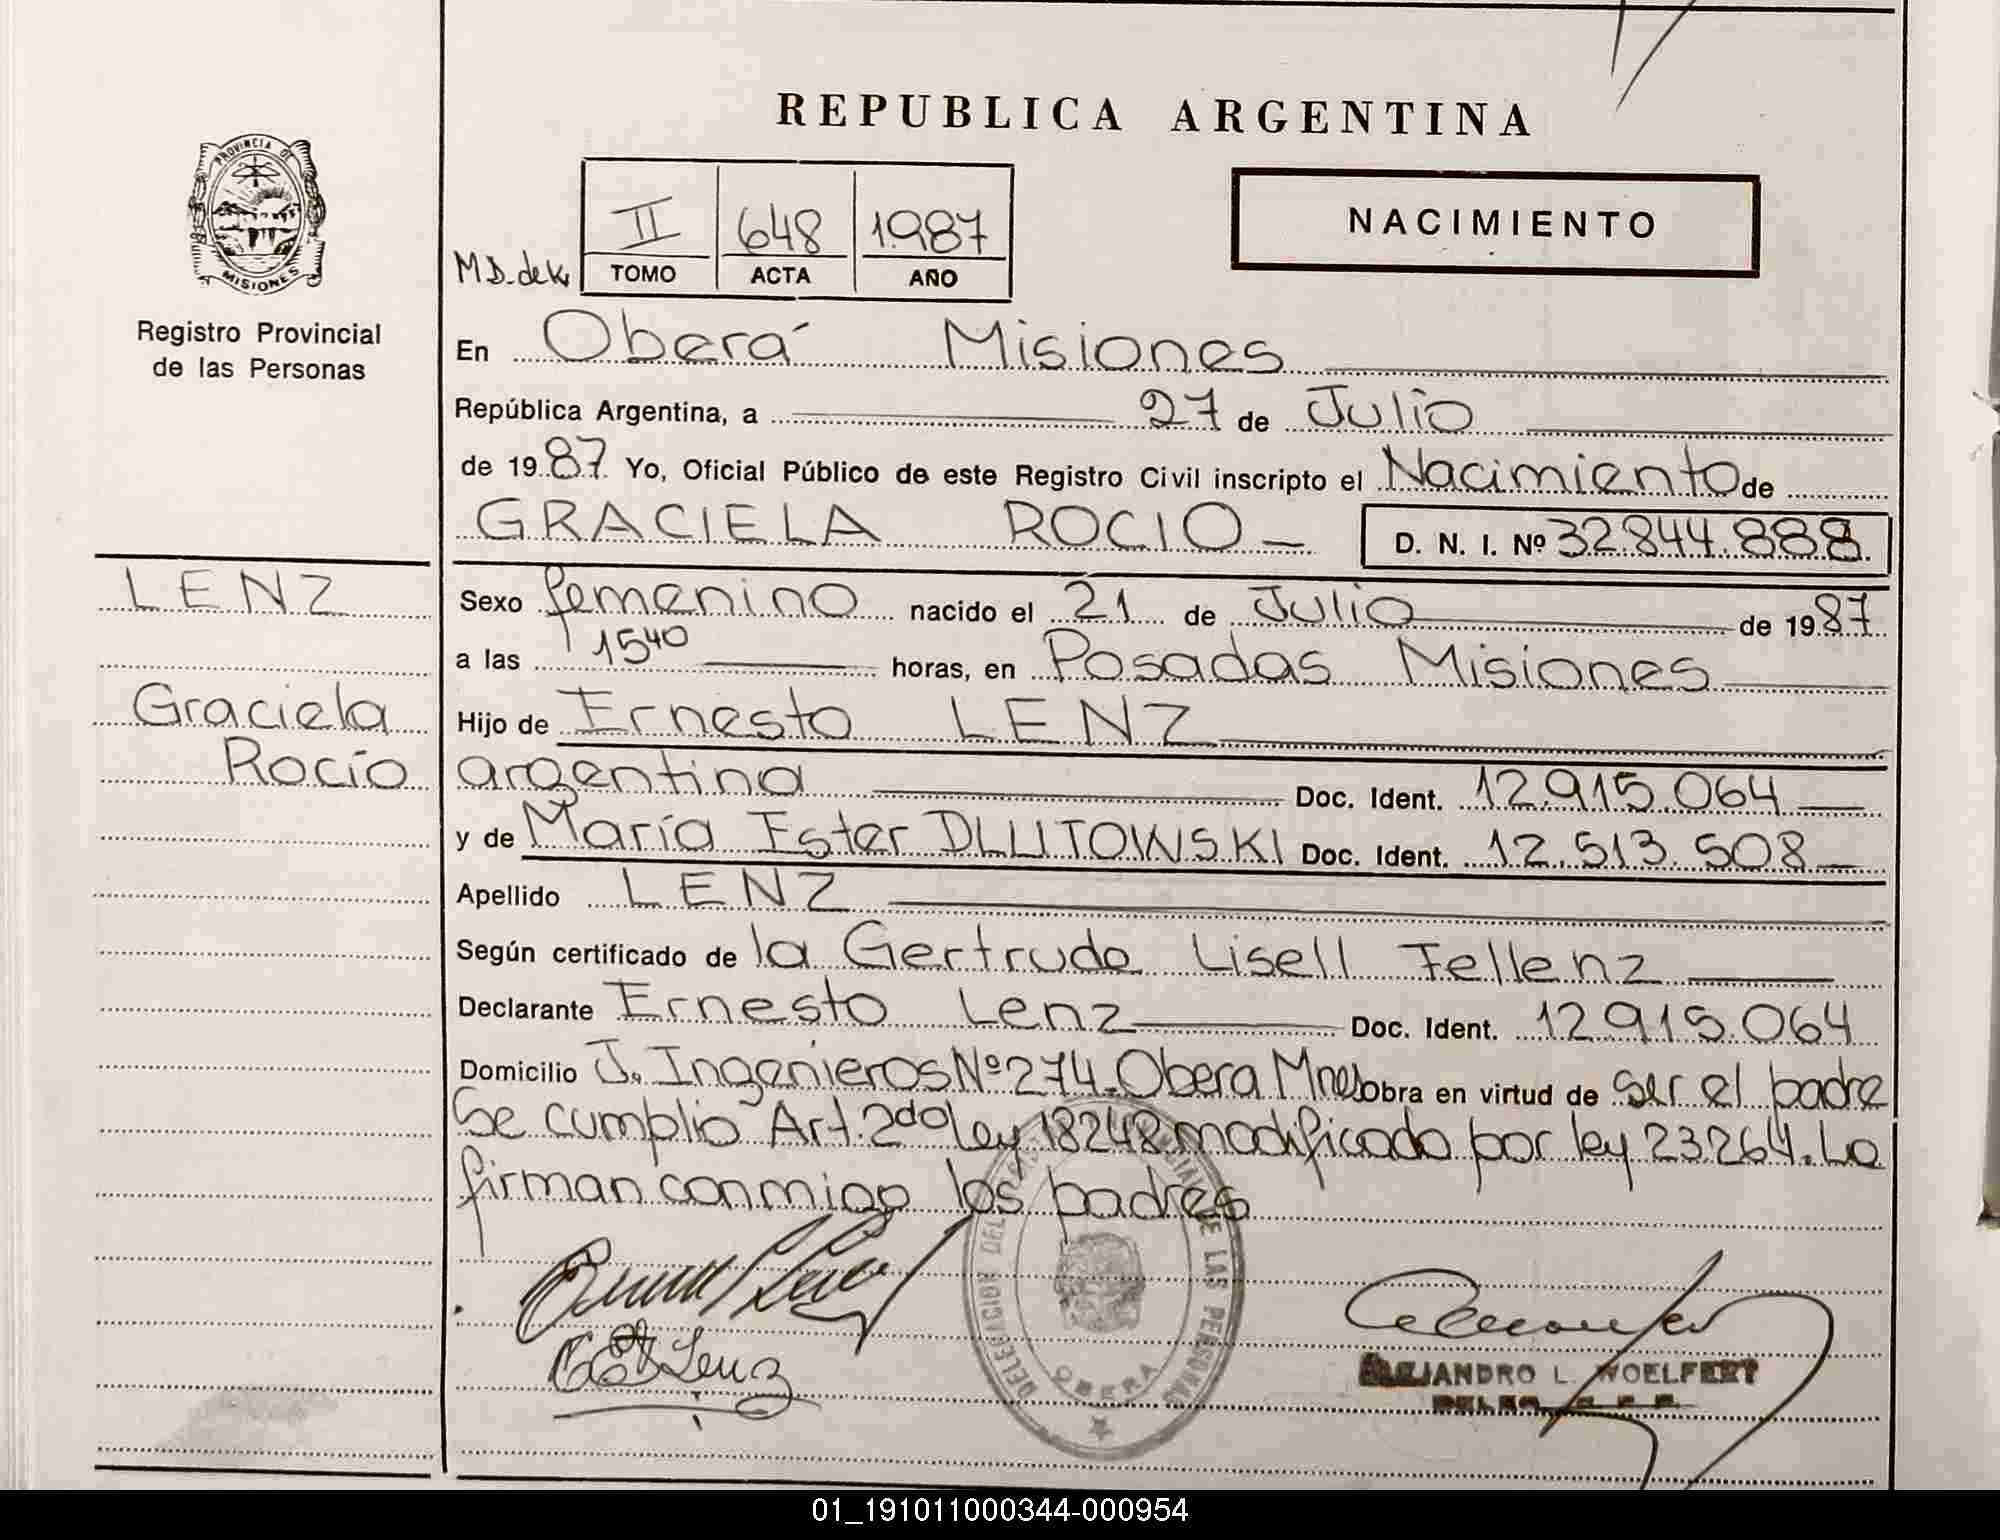 REPUBLICA ARGENTINA
PROVINCIA DE
MISIONES
Registro Provincial
de las Personas
M D. de K.
II 648 1.987
TOMO ACTA AÑO
NACIMIENTO
En Oberá Misiones
República Argentina, a 27 de Julio
de 1987. Yo, Oficial Público de este Registro Civil inscripto el Nacimiento de
GRACIELA ROCIO D. N. I. Nº 32.844.888
LENZ
Graciela
Rocío
Sexo femenino nacido el 21 de Julio de 1987
a las 1540 horas, en Posadas Misiones
Hijo de Ernesto LENZ
argentina Doc. Ident. 12.915.064
y de María Ester DLUTOWSKI Doc. Ident. 12.513.508
Apellido LENZ
Según certificado de la Gertrude Lisell Fellenz
Declarante Ernesto Lenz Doc. Ident. 12.915.064
Domicilio J. Ingenieros Nº 274. Obera Mnes obra en virtud de ser el padre
Se cumplio Art. 2do ley 18248 modificado por ley 23.264. Lo
firman conmigo los padres
DELEGACION DEL DE LAS PERSONAS
OBERA
Lenz
ALEJANDRO L. WOELFERT
01_191011000344-000954